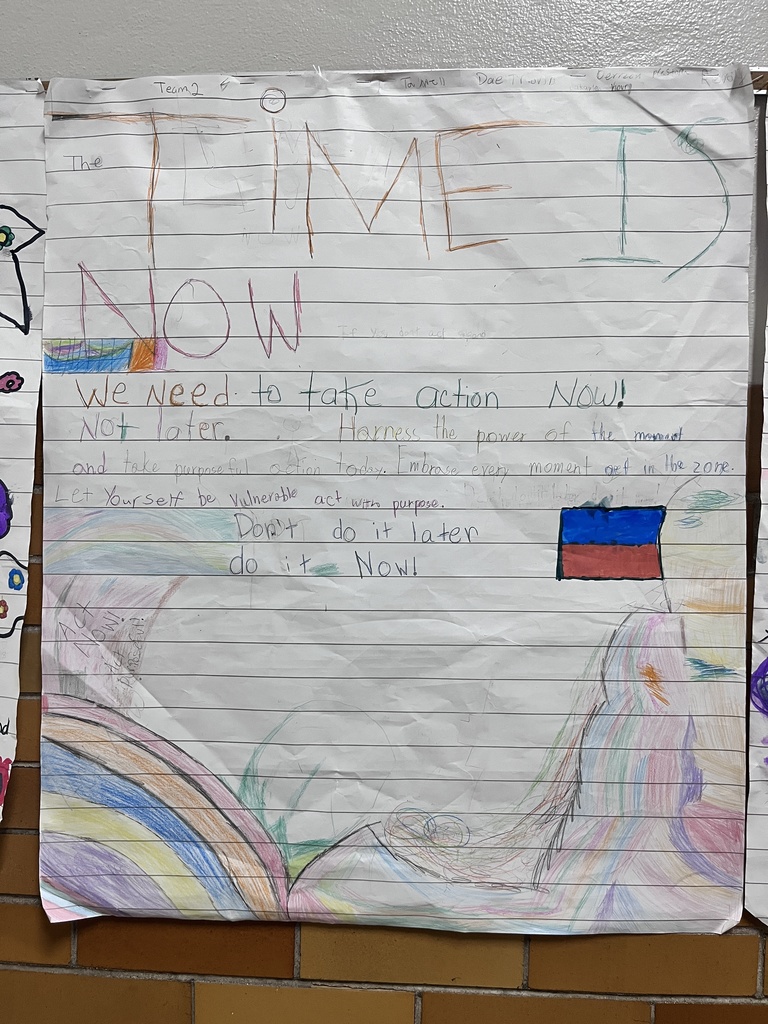 Team 2
The TIME IS
NOW
We Need to take action Now!
Not later. Harness the power of the moment
and take purposeful action today. Embrase every moment get in the zone.
Let Yourself be vulnerable act with purpose.
Don't do it later
do it Now!
Act
NOW!